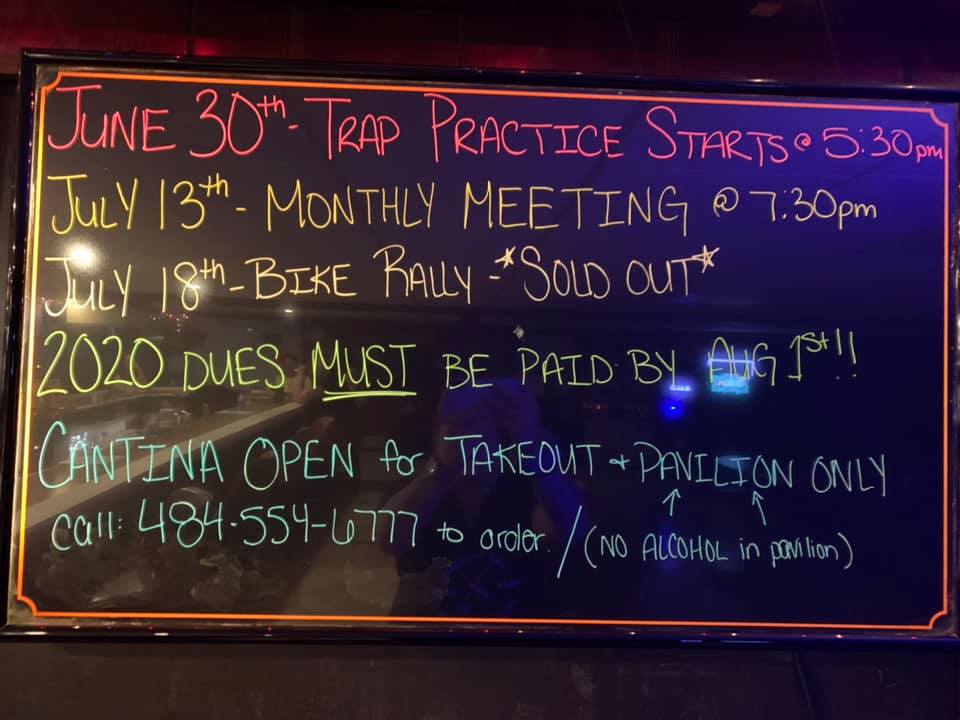 JUNE 30th - TRAP PRACTICE STARTS @ 5:30pm
JULY 13th - MONTHLY MEETING @ 7:30pm
JULY 18th - BIKE RALLY - *SOLD OUT*
2020 DUES MUST BE PAID BY AUG 1st!!
CANTINA OPEN for TAKEOUT + PAVILION ONLY
call: 484-554-6777 to order. / (NO ALCOHOL in pavilion)